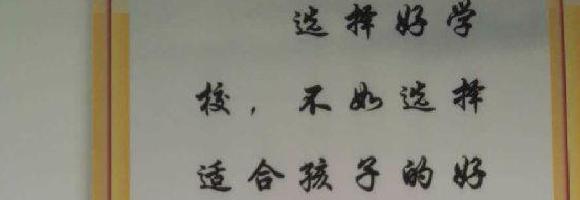 选择好学
校，不如选择
适合孩子的好